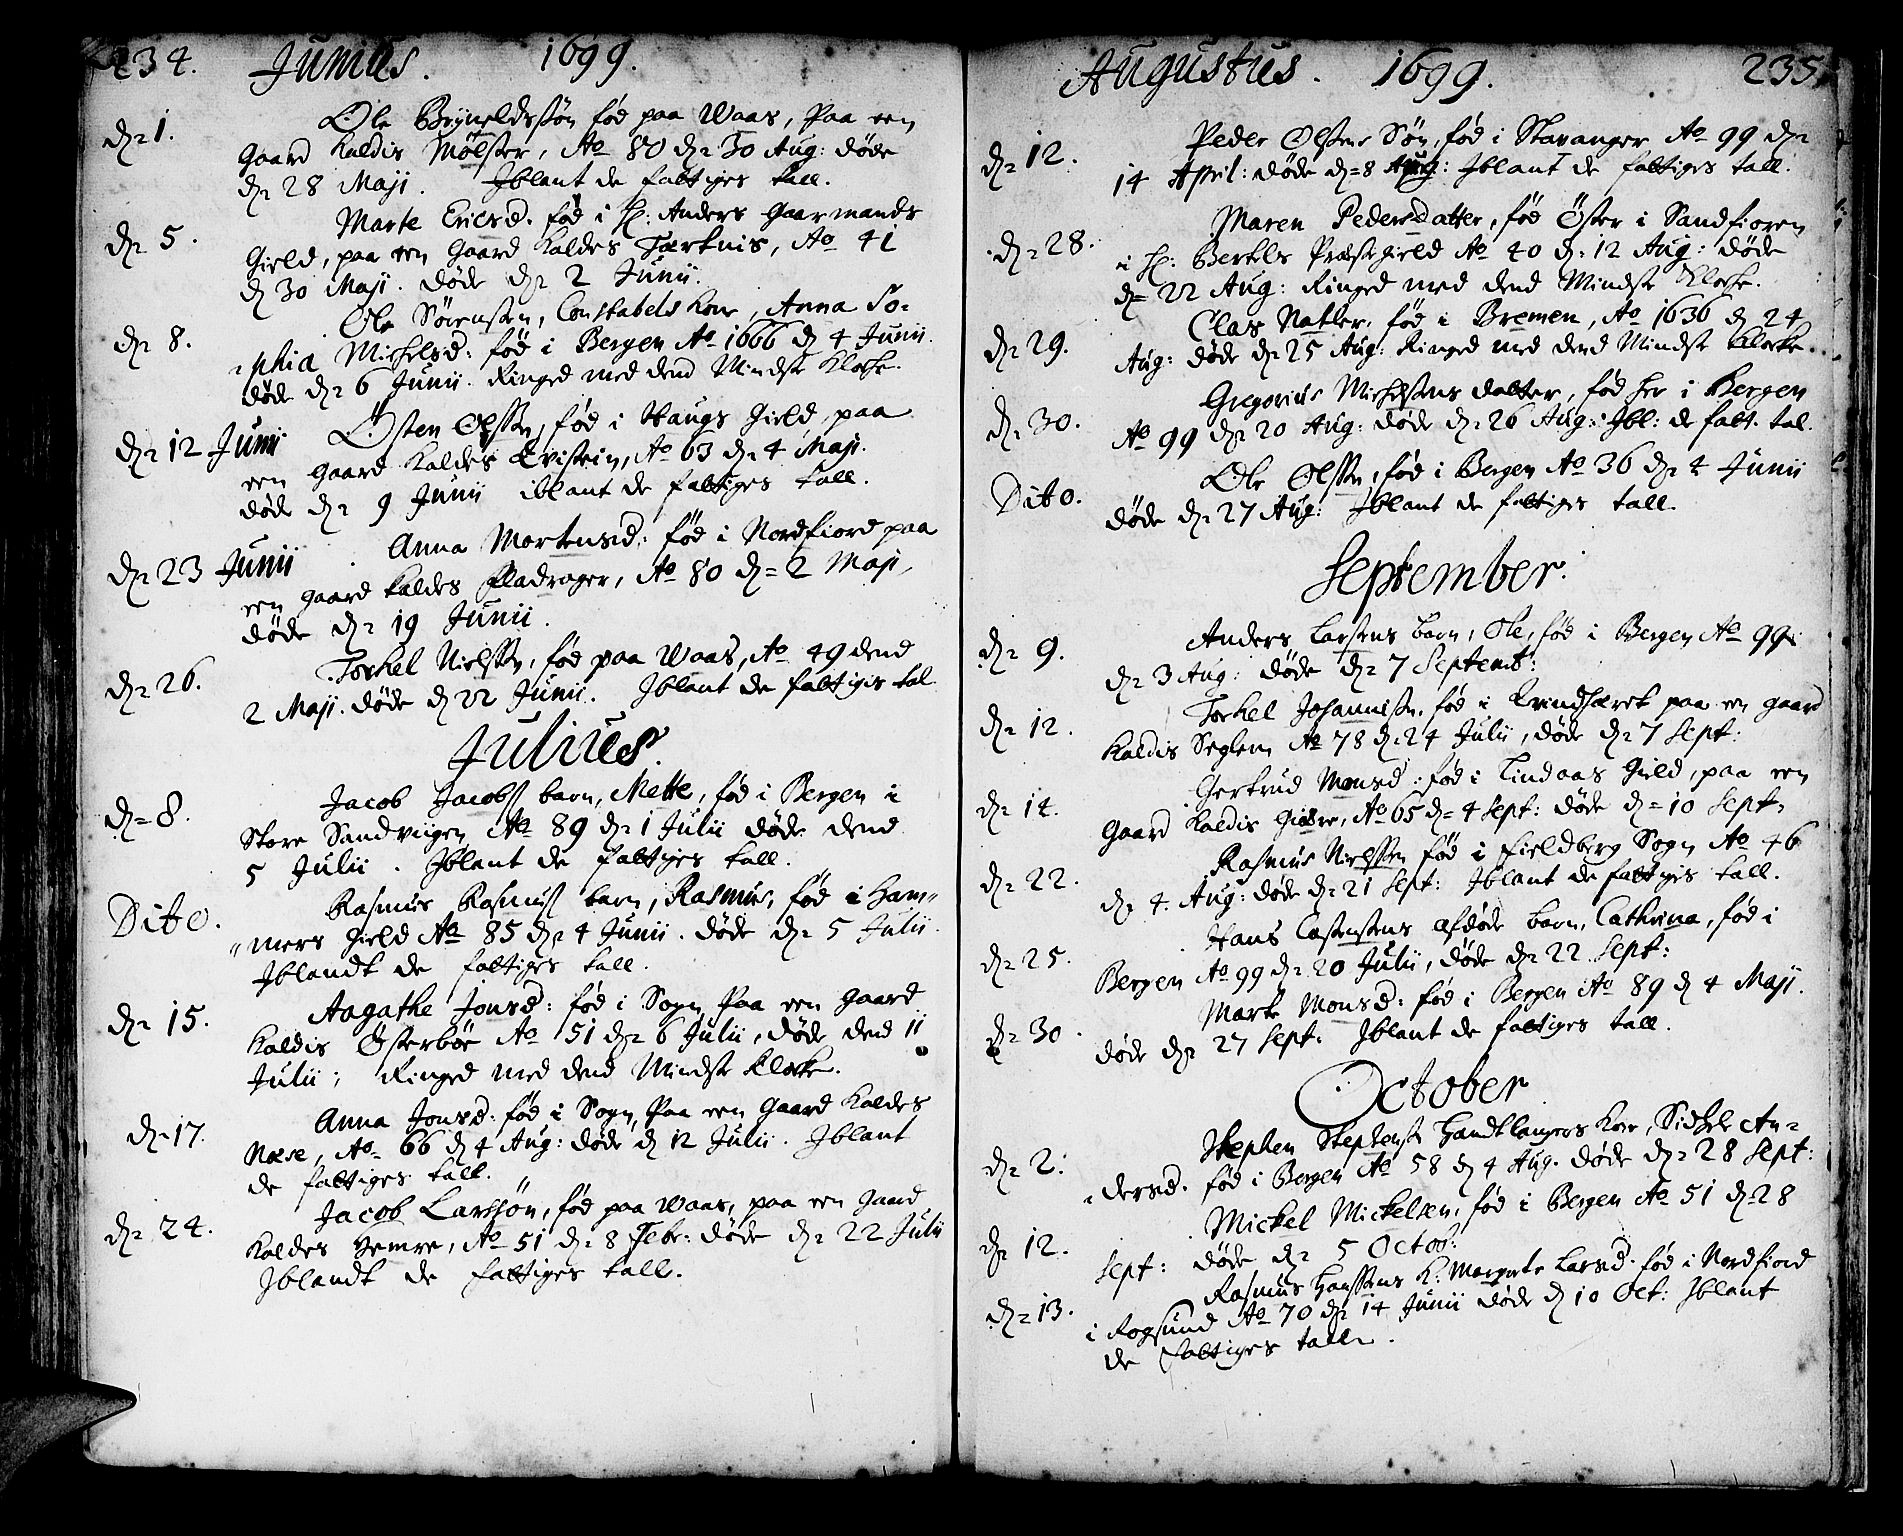 234. Junius. 1699.
dn 1. Ole Brÿneldssøn fød paa Waas, Paa een
gaard Kaldis Mølster, Ao 80 dn 30 Aug: døde
dn 28 Maji. Jblant de fattiges tall.
dn 5. Marte Ericsd. fød i H: Anders Gaarmands
Gield, paa een gaard Kaldes Tærknis, Ao 41
dn 30 Maji. døde dn 2 Junii.
dn 8. Ole Sörensen, Constabels Kone, Anna So-
phia Michelsd: fød i Bergen Ao 1666 dn 4 Junii.
døde dn 6 Junii. Ringed med dend Mindste Klocke.
dn 12 Juni Östen Olssen, fød i Haugs Gield, paa
een gaard Kaldes Qvistein, Ao 63 dn 4 Maji.
døde dn 9 Junii iblant de fattiges tall.
dn 23 Junii Anna Mortensd: fød i Nordfiord paa
een gaard Kaldes Fladrager, Ao 80 dn 2 Maji,
døde dn 19 Junii.
dn 26. Torkel Nielssen, fød paa Waas, Ao 49 dend
2 Maji. døde dn 22 Junii. Jblant de fattigis tal
Julius.
dn 8. Jacob Jacobs barn, Mette, fød i Bergen i
Store Sandviigen Ao 89 dn 1 Julii døde dend
5 Julii. Jblant de fattiges tall.
Dito. Rasmus Rasmus barn, Rasmus, fød i Ham-
mers Gield Ao 85 dn 4 Junii. døde dn 5 Julii.
Jblandt de fattiges tall.
dn 15. Aagathe Jonsd: fød i Sogn Paa een gaard
Kaldis Österböe Ao 51 dn 6 Julii, døde dend 11
Julii; Ringed med dend Mindste Klocke.
dn 17. Anna Jonsd. fød i Sogn, Paa een Gaard Kaldes
Næse, Ao 66 dn 4 Aug: døde dn 12 Julii. Jblant
de fattiges tall.
dn 24. Jacob Larssøn, fød paa Waas, paa een gaard
Kaldes Hemre, Ao 51 dn 8 Febr: døde dn 22 Julii
Jblandt de fattiges tall.
Augustus. 1699. 235.
dn 12. Peder Olsens Søn, fød i Stavanger Ao 99 dn
14 April: døde dn 8 Aug: Jblant de fattiges tall.
dn 28. Maren Pedersdatter, fød Öster i Sandfioren
i H: Bertels Præstegield Ao 40 dn 12 Aug: døde
dn 22 Aug: Ringed med dend Mindste Klocke.
dn 29. Clas Natler, fød i Bremen, Ao 1636 dn 24
Aug: døde dn 25 Aug: Ringed med dend Mindste Klocke.
dn 30. Gregorius Michelsens datter, fød her i Bergen
Ao 99 dn 20 Aug: døde dn 26 Aug: Jbl: de fatt. tal.
Dito. Ole Olssen, fød i Bergen Ao 36 dn 4 Junii
døde dn 27 Aug: Jblant de fattiges tall.
September.
dn 9. Anders Larsens barn, Ole, fød i Bergen Ao 99
dn 3 Aug: døde dn 7 Septemb:
dn 12. Torkel Johannessen, fød i Qvindhæret paa een gaard
Kaldis Seglem Ao 78 dn 24 Julii, døde dn 7 Sept:
dn 14. Gertrud Monsd: fød i Lindaas Gield, paa een
gaard Kaldis Ao 65 dn 4 Sept: døde dn 10 Sept,
dn 22. Rasmus Nielssen fød i Fieldberg Sogn Ao 46
dn 4. Aug: døde dn 21 Sept: Jblant de fattigis tall.
dn 25. Hans Castensens afdøde barn, Cathrina, fød i
Bergen Ao 99 dn 20 Julii, døde dn 22 Sept:
dn 30. Marte Monsd: fød i Bergen Ao 89 dn 4 Maji.
døde dn 27 Sept: Jblant de fattiges tall.
October
dn 2. Stephen Stephens Handtlangers Kone, Sidsele An-
dersd. fød i Bergen Ao 58 dn 4 Aug. døde dn 28 Sept:
dn 12. Mickel Mickelsen, fød i Bergen Ao 51 dn 28
Sept: døde dn 5 Octob:
dn 13. Rasmus Hanssens K: Margrete Larsd. fød i Nordfiord
i Rogsund Ao 70 dn 14 Junii døde dn 10 Oct: Jblant
de fattiges tall.